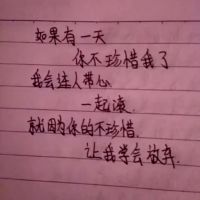 如果有一天
你不珍惜我了
我会连人带心
一起滚.
就因为你的不珍惜.
让我学会放弃.